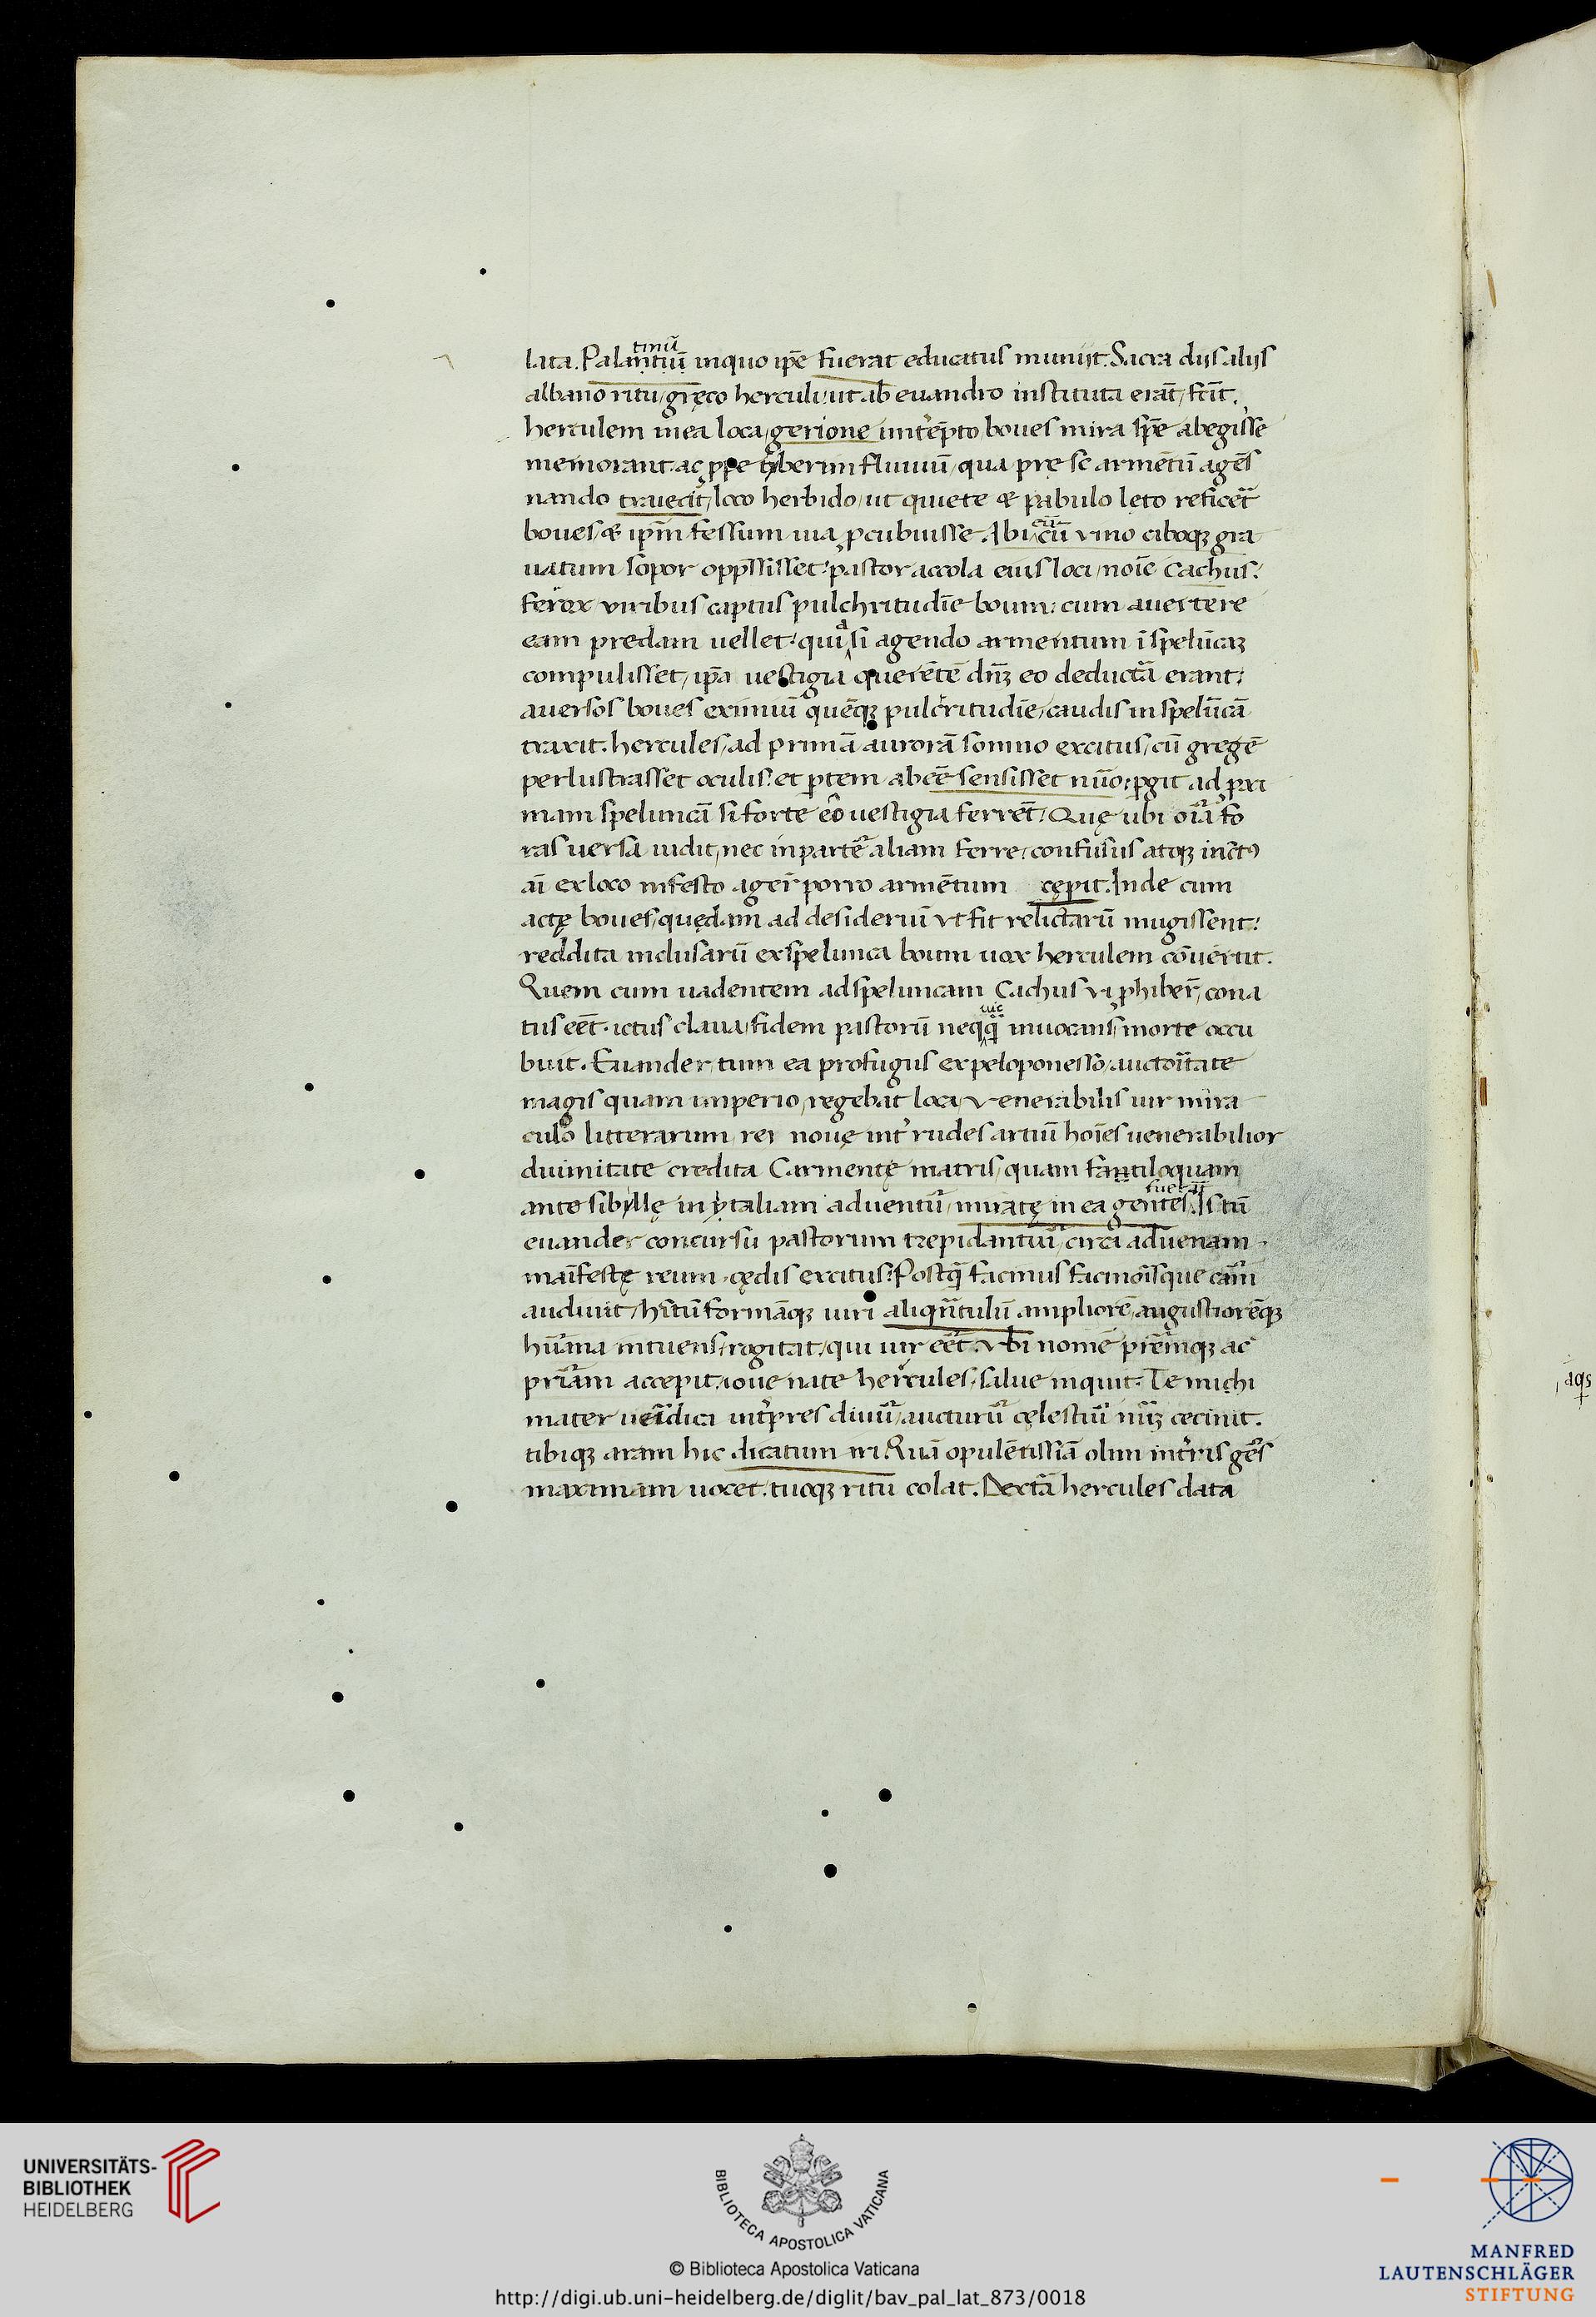 tinū
lata. Palantiū inquo ip̄e fuerat educatus muniit. Sacra diis aliis
albano ritu, gręco herculi, ut ab euandro instituta erāt, fēīt.
herculem in ea loca, gerione int̄ēpto, boues mira sp̄e abegisse
memorant. ac ꝓpe tyberim fluuiū, qua prę se armētū agēs
nando traiecit, loco herbido, ut quiete & pabulo lęto reficet̄
boues, & ip̄m fessum uia ꝓcubuisse. Ibi cū uino ciboqꝫ gra
uatum sopor opp̄ssisset: pastor accola eius loci, noīe Cachus:
ferox uiribus, captus pulchritudīe boum: cum auertere
eam predam uellet: quia si agendo armentum ī spelūcaꝫ
compulisset, ip̄a uestigia querētē dn̄ꝫ eo deductā erant:
auersos boues eximiū quēqꝫ pulcritudīe, caudis in spelūcā
traxit. hercules, ad primā aurorā somno excitus, cū gregē
perlustrasset oculis: et ꝑtem abēē sensisset nūo: ꝑgit ad ꝓxi
mam speluncā si forte eo uestigia ferrēt. Quę ubi oīa fo
ras uersa uidit, nec in partē aliam ferre, confusus atqꝫ incꝰt
aī ex loco infesto ageī porro armētum cępit. Inde cum
actę boues, quędam ad desideriū ut fit relictarū mugissent:
reddita inclusarū ex spelunca boum uox herculem cōuertit.
Quem cum uadentem ad speluncam Cachus ui ꝓhiber̄, cona
tus eēt. ictus claua, fidem pastorū neqq̄ inuocans, morte occu
buit. Euander, tum ea profugus ex peloponesso, auctoītate
magis quam imperio, regebat loca, uenerabilis uir mira
culo litterarum, rei nouę int̄ rudes artiū hoīes uenerabilior
diuinitate credita Carmentę matris, quam fantiloquam
fuerāt
ante sibyllę in ytaliam aduentū, miratę in ea gentes. Is tū
euander concursu pastorum trepidantiū, circa aduenam
maīfestę reum cędis excitus: Postq̄ facinus facinoīsque cām
audiuit, hītū formāqꝫ uiri aliqūātulū ampliorē, augustiorēqꝫ
hūana intuens, rogitat, qui uir eēt. Vbi nomē prēmqꝫ ac
prīam accepit. ioue nate hercules, salue inquit. Te michi
mater ueīdica int̄pres diuū, aucturū cęlestiū nūꝫ cecinit.
tibiqꝫ aram hic dicatum iri. Quā opulētissīā olim int̄ris gēs
maximam uocet. tuoqꝫ ritū colat. Dextā hercules data
aqs
UNIVERSITÄTS-
BIBLIOTHEK
HEIDELBERG
BIBLIOTECA APOSTOLICA VATICANA
© Biblioteca Apostolica Vaticana
http://digi.ub.uni-heidelberg.de/diglit/bav_pal_lat_873/0018
MANFRED
LAUTENSCHLÄGER
STIFTUNG